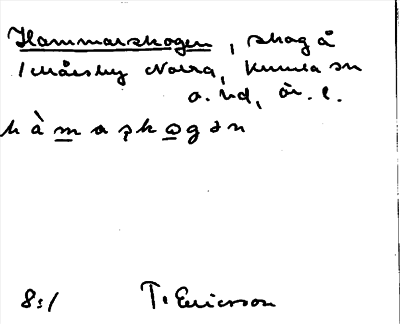 Hammarskogen, skog å
1 Mårsby Norra, Kumla sn
o. hd, Ör. l.
hàmaşkogən
8:1 T. Ericsson